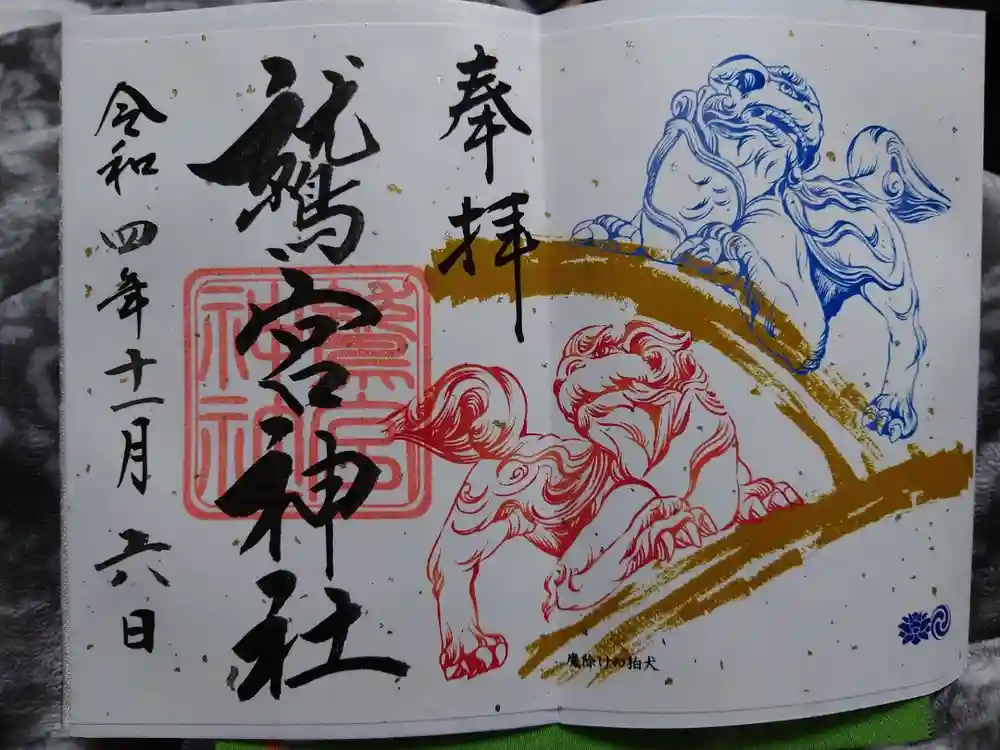 奉拝
鷲宮神社
鷲宮神社
令和四年十一月六日
魔除けの狛犬